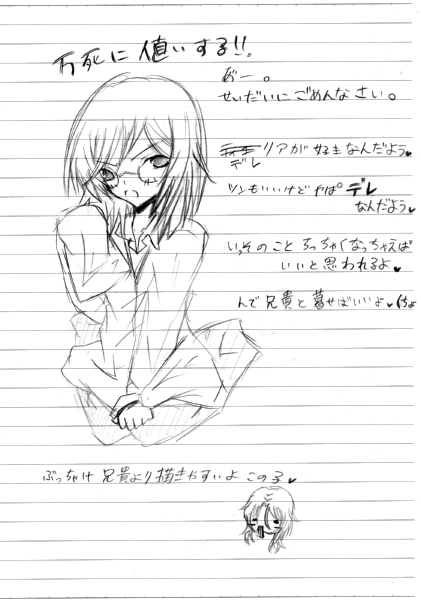 万死に値いする!!
あ゛ー。
せいだいにごめんなさい。
リアが好きなんだよう♥
デレ
ツンもいいけど やぱ デレ
なんだよう♥
いっそのこと ちっちゃくなっちゃえば
いいと思われるよ♥
んで兄貴と暮せばいいよ♥
ぶっちゃけ 兄貴より描きやすいよ この子♥